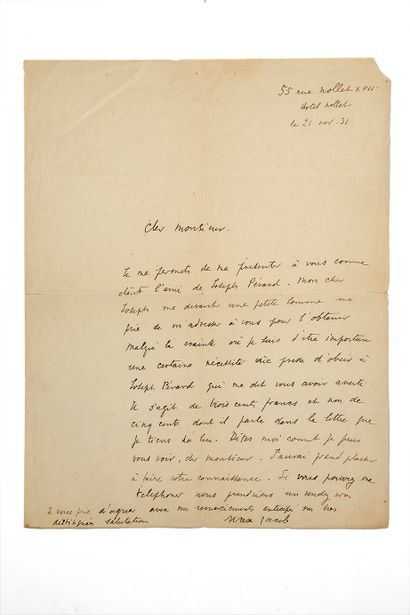 55 rue Nollet XVII.
Hotel Nollet
le 21 nov. 31.
Cher Monsieur.
Je me permets de me présenter à vous comme
étant l'ami de Joseph Pérard. Mon cher
Joseph me devant une petite somme me
prie de m adresser à vous pour l'obtenir
Malgré la crainte où je suis d'être importun
une certaine nécessité me presse d'obéir à
Joseph Pérard qui me dit vous avoir averti.
Il s'agit de trois cents francs et non de
cinq cents dont il parle dans la lettre que
je tiens de lui. Dites moi comment je puis
vous voir, cher Monsieur. J'aurai grand plaisir
à faire votre connaissance. Si vous pouvez me
téléphoner nous prendrions un rendez vous
Je vous prie d'agréer avec mes remerciements anticipés mes très
distinguées salutations
Max Jacob